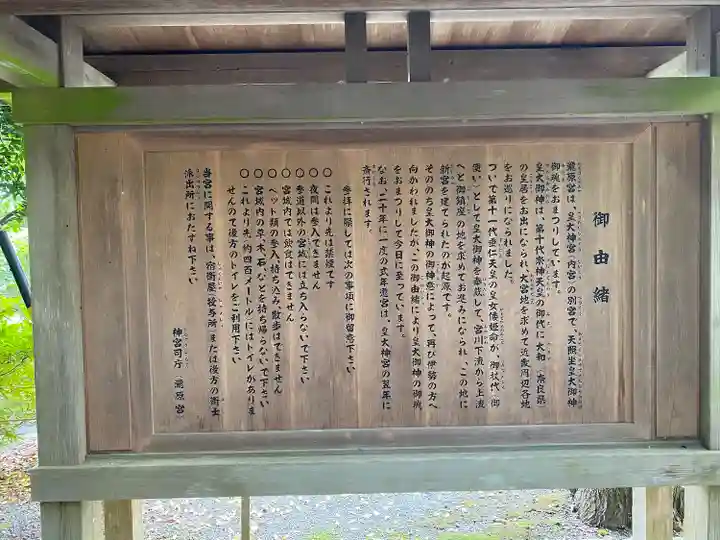 御由緒
瀧原宮は、皇大神宮(内宮)の別宮で、天照坐皇大御神
御魂をおまつりしています。
皇大御神は、第十代崇神天皇の御代に大和(奈良県)
の皇居をお出になられ、大宮地を求めて近畿周辺各地
をお巡りになられました。
ついで第十一代垂仁天皇の皇女倭姫命が、御杖代(御
使い)として皇大御神を奉戴して、宮川下流から上流
へと御鎮座の地を求めてお進みになられ、この地に
新宮を建てられたのが起源です。
そののち皇大御神の御神意によって、再び伊勢の方へ
向かわれましたが、この御由緒により皇大御神の御魂
をおまつりして今日に至っています。
なお、二十年に一度の式年遷宮は、皇大神宮の翌年に
斎行されます。
参拝に際しては次の事項に御留意下さい
○ これより先は禁煙です
○ 夜間は参入できません
○ 参道以外の宮域には立ち入らないで下さい
○ 宮域内では飲食はできません
○ ペット類の参入、持ち込み、散歩はできません
○ 宮域内の草、木、石、などを持ち帰らないで下さい
○ これより先、約四百メートル、にはトイレがありま
せんので後方のトイレをご利用下さい
当宮に関する事は、宿衛屋(授与所)または後方の衛士
派出所におたずね下さい
神宮司庁(瀧原宮)